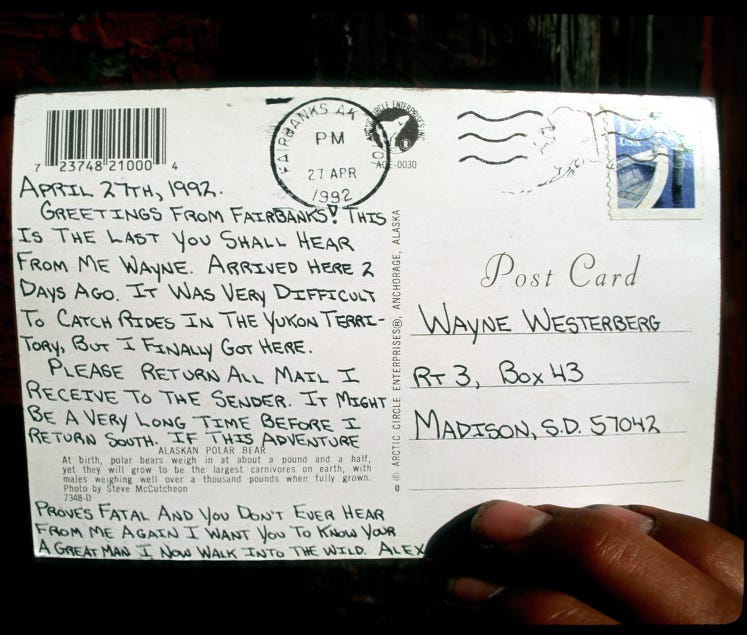 7 23748 21000 4
FAIRBANKS AK
PM
27 APR
1992
ARCTIC CIRCLE ENTERPRISES INC
ACE-0030
USA
APRIL 27TH, 1992.
GREETINGS FROM FAIRBANKS! THIS
IS THE LAST YOU SHALL HEAR
FROM ME WAYNE. ARRIVED HERE 2
DAYS AGO. IT WAS VERY DIFFICULT
TO CATCH RIDES IN THE YUKON TERRI-
TORY, BUT I FINALLY GOT HERE.
PLEASE RETURN ALL MAIL I
RECEIVE TO THE SENDER. IT MIGHT
BE A VERY LONG TIME BEFORE I
RETURN SOUTH. IF THIS ADVENTURE
ALASKAN POLAR BEAR
At birth, polar bears weigh in at about a pound and a half,
yet they will grow to be the largest carnivores on earth, with
males weighing well over a thousand pounds when fully grown.
Photo by Steve McCutcheon
7348-D
PROVES FATAL AND YOU DON'T EVER HEAR
FROM ME AGAIN I WANT YOU TO KNOW YOUR
A GREAT MAN I NOW WALK INTO THE WILD. ALEX
© ARCTIC CIRCLE ENTERPRISES®, ANCHORAGE, ALASKA
Post Card
WAYNE WESTERBERG
RT 3, BOX 43
MADISON, S.D. 57042